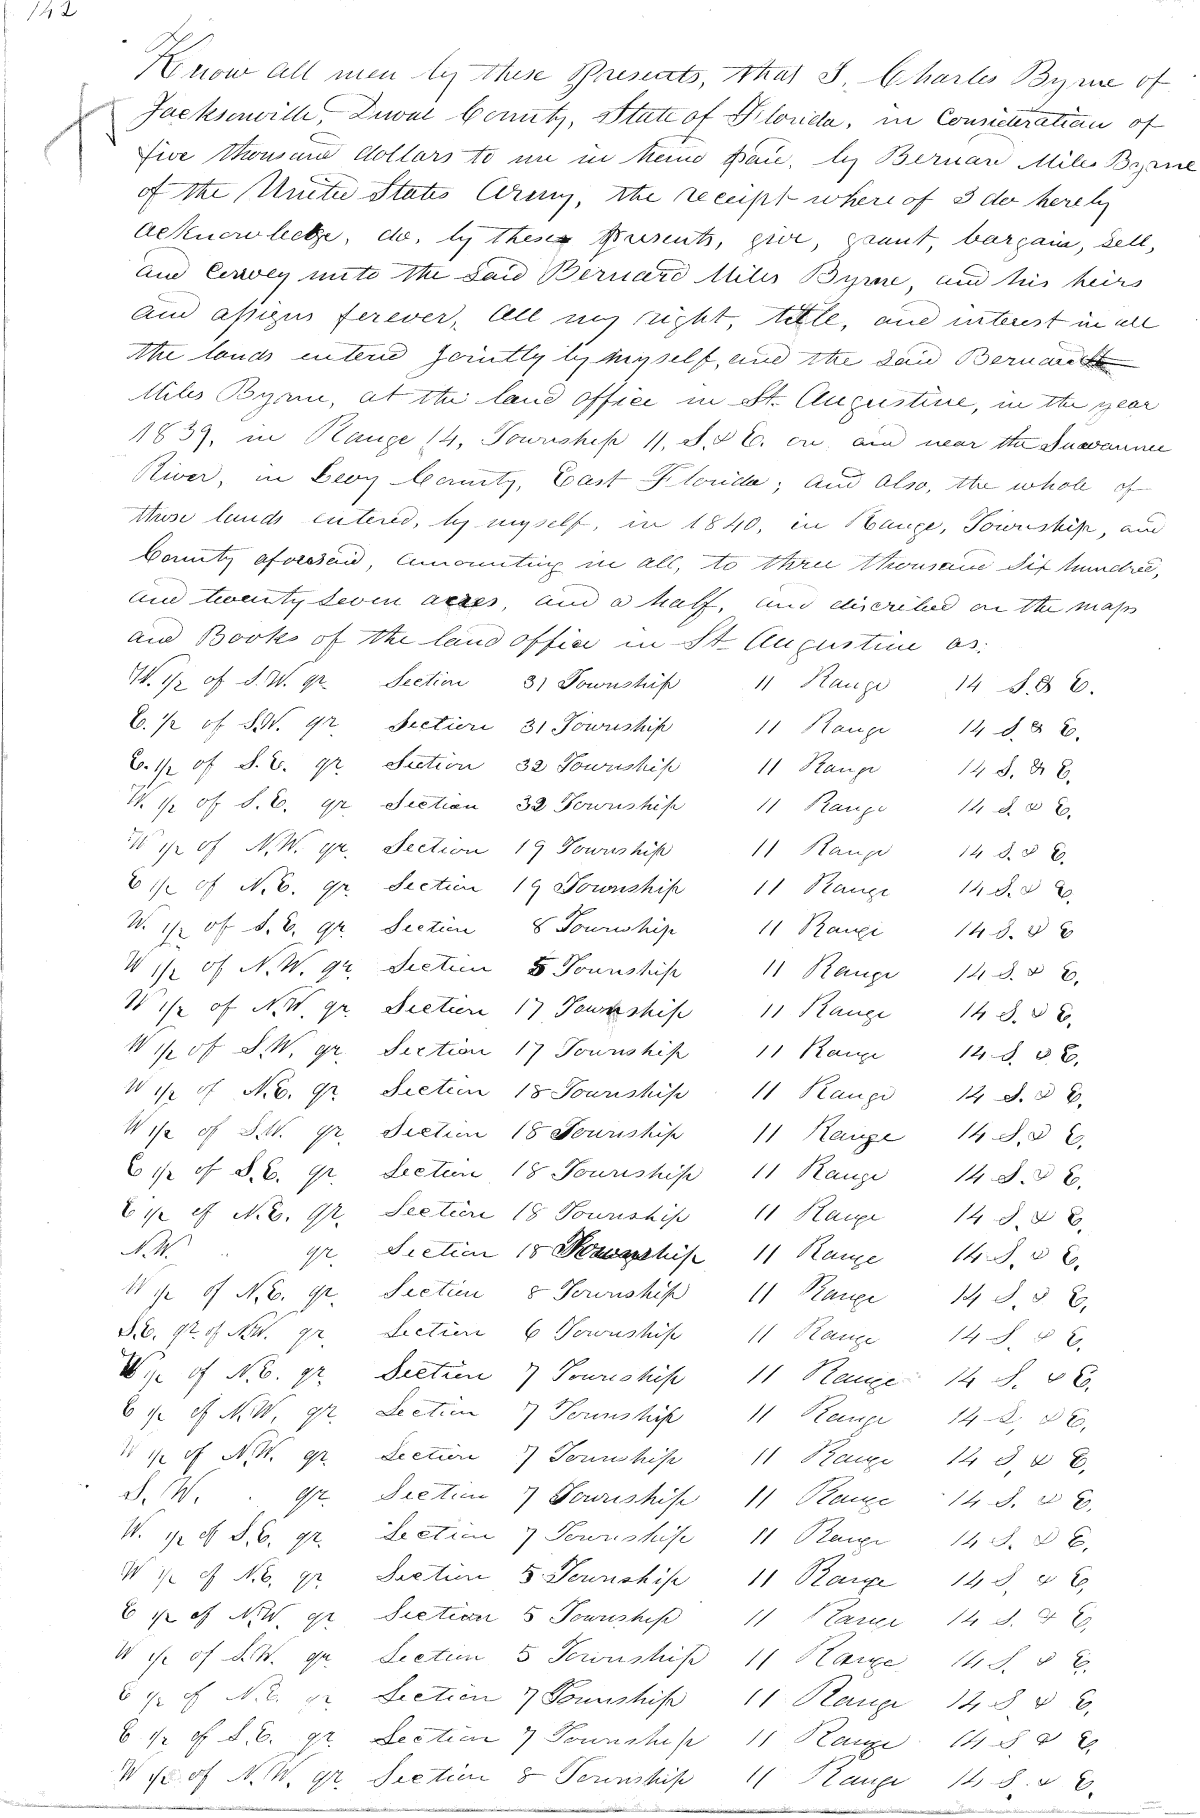 142
Know all men by these Presents, that I, Charles Byrne of
Jacksonville, Duval County, State of Florida, in Consideration of
five thousand dollars to me in hand paid, by Bernard Miles Byrne
of the United States Army, the receipt where of I do hereby
acknowledge, do, by these presents, give, grant, bargain, sell,
and Convey unto the said Bernard Miles Byrne, and his heirs
and assigns forever, all my right, title, and interest in all
the lands entered jointly by myself, and the said Bernard
Miles Byrne, at the land office in St. Augustine, in the year
1839, in Range 14, Township 11, S. & E. on and near the Suwannee
River, in Levy County, East Florida; and also, the whole of
those lands entered, by myself, in 1840, in Range, Township, and
County aforesaid, amounting in all, to three thousand six hundred,
and twenty seven acres, and a half, and discribed on the maps
and Books of the land office in St Augustine as:
W. 1/2 of S.W. qr. Section 31 Township 11 Range 14 S. & E.
E. 1/2 of S.W. qr. Section 31 Township 11 Range 14 S. & E.
E. 1/2 of S.E. qr. Section 32 Township 11 Range 14 S. & E.
W. 1/2 of S.E. qr. Section 32 Township 11 Range 14 S. & E.
W 1/2 of N.W. qr. Section 19 Township 11 Range 14 S. & E.
E 1/2 of N.E. qr. Section 19 Township 11 Range 14 S. & E.
W. 1/2 of S.E. qr. Section 8 Township 11 Range 14 S. & E
W 1/2 of N.W. qr. Section 5 Township 11 Range 14 S. & E.
W 1/2 of N.W. qr. Section 17 Township 11 Range 14 S. & E.
W 1/2 of S.W. qr. Section 17 Township 11 Range 14 S. & E.
W 1/2 of N.E. qr. Section 18 Township 11 Range 14 S. & E.
W 1/2 of S.W. qr. Section 18 Township 11 Range 14 S. & E.
E 1/2 of S.E. qr. Section 18 Township 11 Range 14 S. & E.
E 1/2 of N.E. qr. Section 18 Township 11 Range 14 S. & E.
N.W. qr. Section 18 Township 11 Range 14 S. & E.
W 1/2 of N.E. qr. Section 8 Township 11 Range 14 S. & E.
S.E. qr. of N.W. qr. Section 6 Township 11 Range 14 S. & E.
W 1/2 of N.E. qr. Section 7 Township 11 Range 14 S. & E.
E 1/2 of N.W. qr. Section 7 Township 11 Range 14 S. & E.
W 1/2 of N.W. qr. Section 7 Township 11 Range 14 S. & E.
S. W. qr. Section 7 Township 11 Range 14 S. & E.
W. 1/2 of S.E. qr. Section 7 Township 11 Range 14 S. & E.
W 1/2 of N.E. qr. Section 5 Township 11 Range 14 S. & E.
E 1/2 of N.W. qr. Section 5 Township 11 Range 14 S. & E.
W 1/2 of S.W. qr. Section 5 Township 11 Range 14 S. & E.
E 1/2 of N.E. qr. Section 7 Township 11 Range 14 S & E.
E 1/2 of S.E. qr. Section 7 Township 11 Range 14 S & E.
W 1/2 of N.W. qr. Section 8 Township 11 Range 14 S. & E.